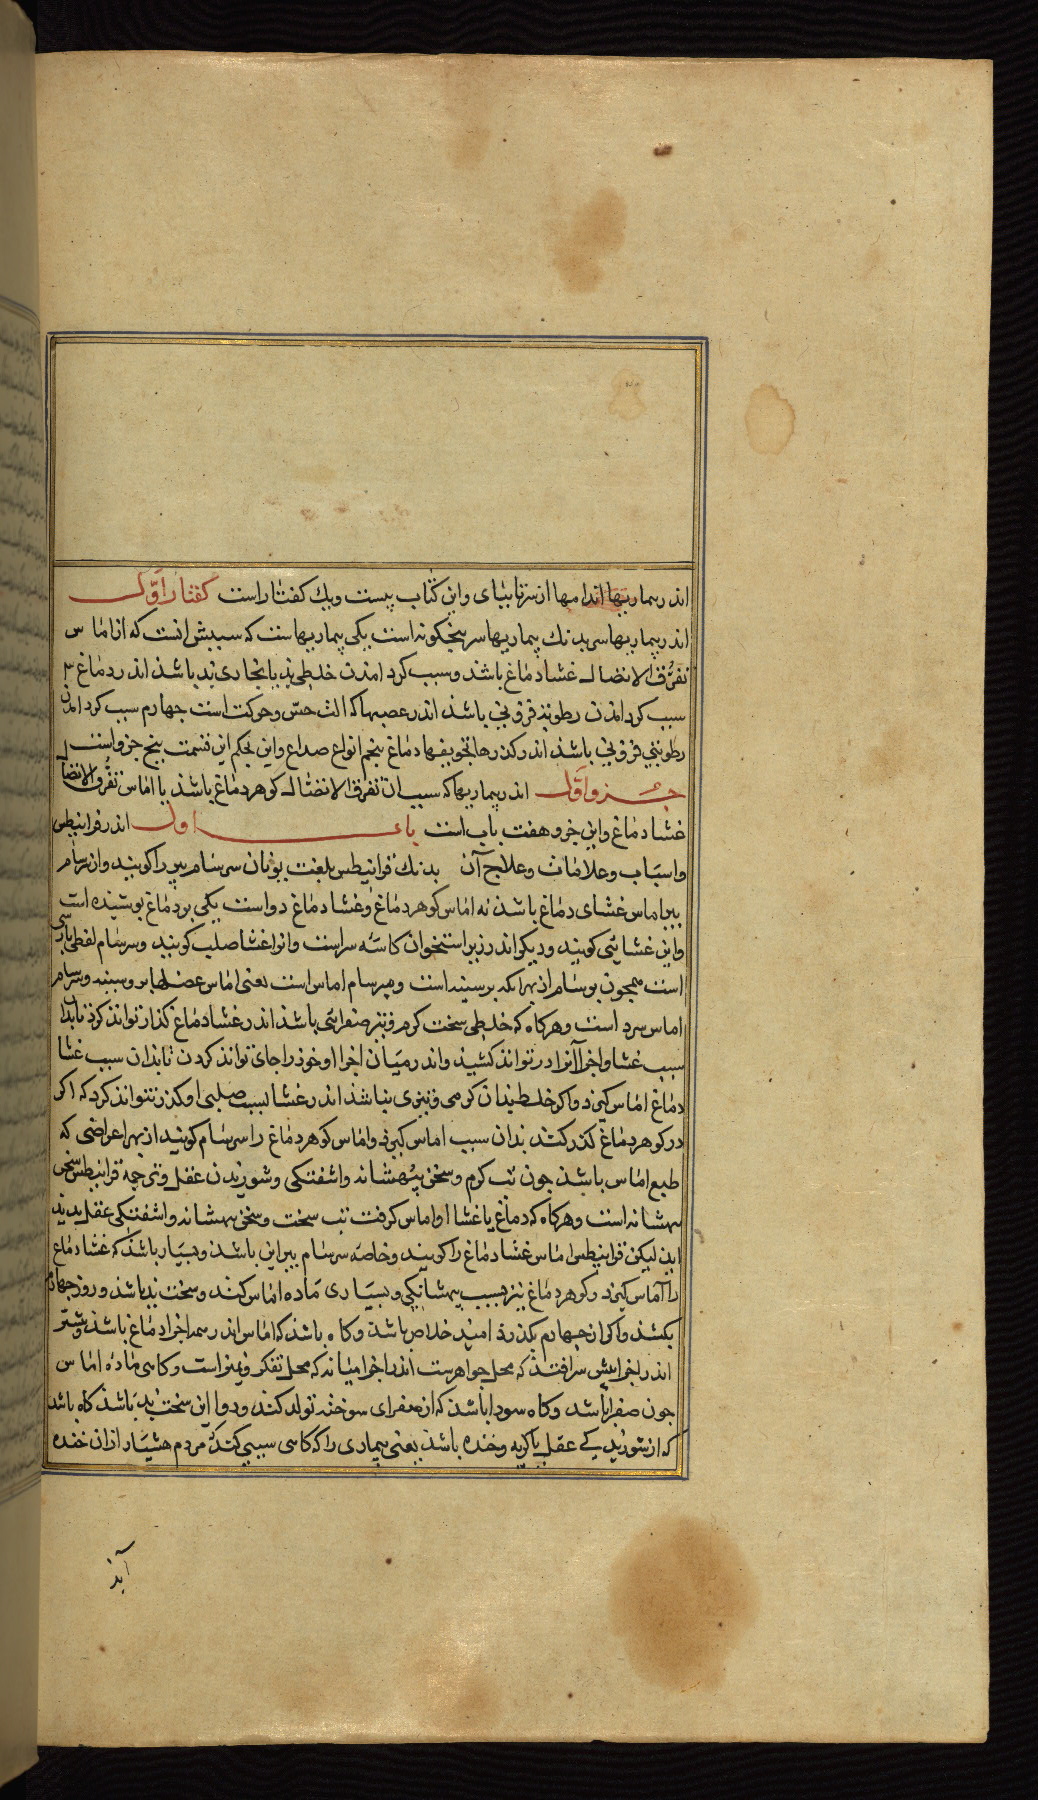 اندر بیماریها اندامها از سر تا بپای و این کتاب بیست و یک کفتار است کفتار اول
اندر بیماریهای سر بدنک بیماریها سر پنجکونه است یکی بیماریهاست که سببش انست که اناماس
تفرق الانصال غشا دماغ باشد و سبب کرد امدن خلطی بد یا بخاری بد باشد اندر دماغ ۳
سبب کرد امدن رطوبه فزونی باشد اندر عصبها که الت حس و حرکت است جهارم سبب کرد امدن
رطوبتی فزونی باشد اندر کذرها تجویفها دماغ پنجم انواع صداع و این بحکم این قسمت پنج جزو است
جزو اول اندر بیماریها که سبب ان تفرق الانصال کوهر دماغ باشد یا اماس تفرق الانصال
غشا دماغ و این جزو هفت باب است باب اول اندر فرانیطس
و اسباب و علامات و علاج آن بدنک فرانیطس بلغت یونان سرسام ببر را کویند و از سرسام
ببر اماس غشای دماغ باشد نه اماس کوهر دماغ و غشا دماغ دو است یکی بر دماغ پوشیده است
و این غشا یی کویند و دیکر اندر زیر استخوان کاسه سر است و انرا غشا صلب کویند و سرسام لفظی پارسی
است همجون برسام از بهر انکه بر سینه است و سام اماس است یعنی اماس عضلها بر و سینه و سرسام
اماس سر است و هر کاه که خلطی سخت کرم و تیز صفرائی باشد اندر غشا دماغ کذار تواند کرد تا بدان
سبب غشا و اجزا آنرا در تواند کشید و اندر میان اجزا او خود را جای تواند کردن تا بدان سبب غشا
دماغ اماس کیرد و اکر خلط بدان کرمی و تیزی نباشد اندر غشا لسبب صلبی او کذر نتواند کرد که اکر
در کوهر دماغ کذر کند بدان سبب اماس کیرد و اماس کوهر دماغ را سرسام کویند از بهر اعراضی که
طبع اماس باشد جون تب کرم و سخن بیهشانه و اشفتکی و شوریدن عقل و ترجمه فرانیطس سخن
بیهشانه است و هر کاه که دماغ یا غشا او اماس کرفت تب سخت و سخن بیهشانه و اشفتکی عقل بدید
اید لیکن فرانیطس اماس غشا دماغ را کویند و خاصه سرسام ببر این باشد و بسیار باشد که غشا دماغ
را آماس کیرد و کوهر دماغ نیز بسبب همشانکی و بسیاری ماده اماس کند و سخت بد باشد و روز جهارم
بکشد و اکر از جهارم بکذرد امید خلاص باشد و کاه باشد که اماس اندر همه اجزا دماغ باشد و بیشتر
اندر اجزا پیش سر افتد که محل جواهرست اندر اجزا میانه که محل تفکر و تمیز است و کاهی ماده اماس
جون صفرا باشد و کاه سودا باشد که از صفرای سوخته تولد کند و دوا این سخت بد باشد کاه باشد
که از شوریدکی عقل با کریه و خنده باشد یعنی بیماری را که کاهی سببی کند که مردم هشیار از ان خنده
آید